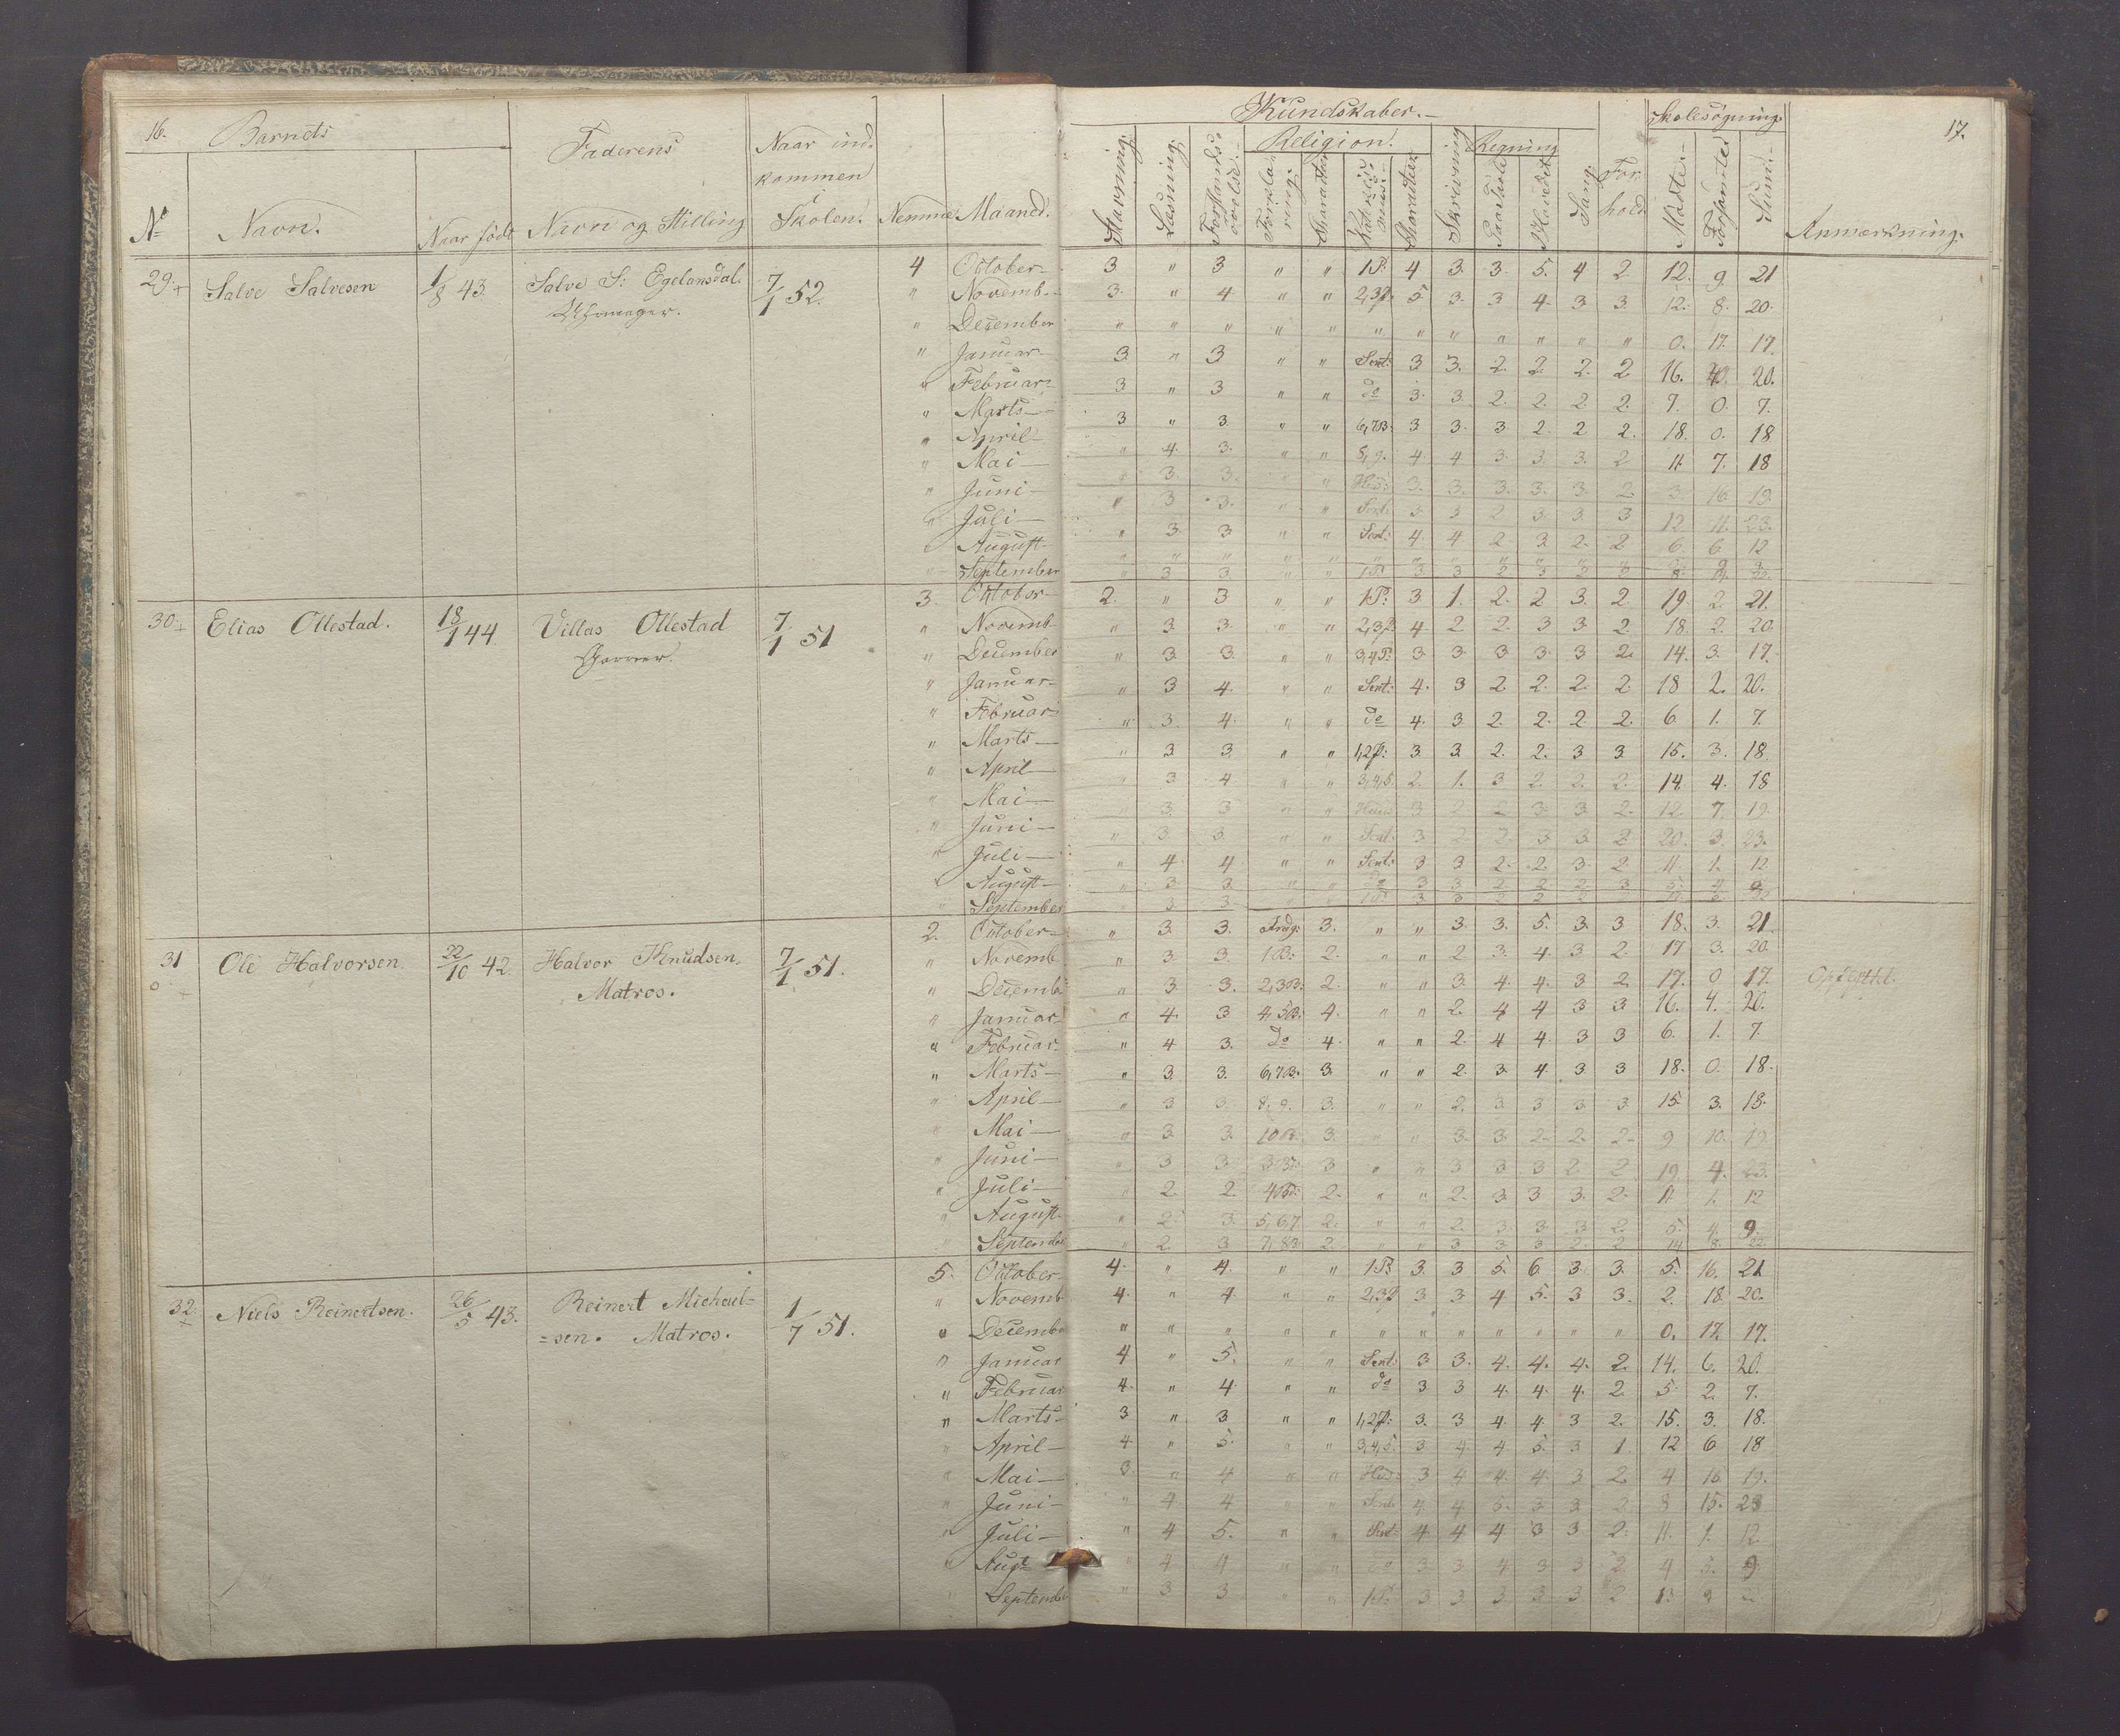 16. Barnets Faderens Naar ind-
kommen
i
Skolen.
No Navn. Naar födt Navn og Stilling Nemme Maaned.
Kundskaber.
Religion. Regning Skolesøgning. 17.
Stavning. Læsning. Forstands-
øvelse. Forkla-
ring. Charakter Charakter Skrivning Paa Skole Hovedet Sang. For-
hold Mødte. Forsømte Sum. Anmærkning.
29. Salve Salvesen 1/8 43. Salve S: Egelandsdal. 7/1 52.
4 October 3 " 3 " " 1P. 4 3. 3. 5. 4 2 12. 9 21
" Novemb. 3. " 4. " " 2,3P. 5. 3. 3 4. 3 3. 12. 8. 20.
" December " " " " " " " " " " " " 0. 17. 17.
" Januar 3. " 3 " " Sent: 3 3. 2. 2. 2. 2 16. 20.
" Februar 3 " 3 " " do 3. 3. 2. 2. 2. 2. 7. 0. 7.
" Marts 3 " 3. " " 6,7B. 3 3. 3. 2. 2 2. 18. 0. 18
" April " 4. 3. " " 5,9. 4. 4 3. 3. 3. 2 11. 7. 18
" Mai " 3. 3. " " 3. 3. 3. 3. 3. 2 3. 16. 19
" Juni " 3 3. " " Sent. 3 3 2 3. 3. 3 12 11. 23.
" Juli " 3. 3 " " Sent: 4. 4 2. 3 2. 2 6. 6. 12
" August
" September " 3. 3. " " 1P 3 3 2 3
30. Elias Ollestad. 18/1 44. Villas Ollestad 7/1 51
3. October 2. " 3 " " 1P. 3. 1. 2. 2 3. 2. 19. 2. 21.
" Novemb " 3. 3. " " 2,3P. 4 2 2. 3 3. 2 18. 2. 20.
" December " 3 3. " " 3,4P. 3. 3. 3 3. 3 2. 14. 3. 17.
" Januar " 3 4. " " Sent: 4. 3 2 2. 2. 2 18 2. 20.
" Februar " 3. 4. " " do 4. 3. 2. 2. 2 2. 6 1. 7.
" Marts " 3. 3. " " 1,2P: 3. 3. 2. 2. 3 3. 15. 3. 18.
" April " 3 4 " " 3,4,5. 2. 1. 3 2. 2. 2. 14. 4. 18
" Mai " 3. 3 " " 3 2 2 3. 3. 2. 12 7. 19.
" Juni " 3. 3. " " Sent. 3 2 2 3 3. 2 20. 3. 23.
" Juli " 4 4 " " Sent: 3 3 2. 2. 3. 2 11 1. 12
" August " 3. 3. " " do 3 3 2 2 2 3
" September " 3 3
31 Ole Halvorsen. 22/10 42. Halvor Knudsen. 7/1 51.
Matros.
2. October " 3. 3. 3. " " 3. 3. 5. 3. 3 18. 3. 21.
" Novemb " 3. 3. 1B. 2. " " 2 3. 4. 3 2. 17 3. 20
" Decemb " 3. 3. 2,3B. 2. " " 3. 4. 4. 3 2 17. 0 17. Opflyttet.
" Januar " 4. 3 4,5B. 4. " " 2. 4 4 3 3 16. 4. 20.
" Februar. " 4 3. do 4. " " 2. 4 4. 3 3 6. 1. 7.
" Marts " 3. 3. 6,7B. 3. " " 2. 3. 4. 3 3 18. 0. 18.
" April " 3 3. 8,9. 3. " " 2. 3. 3 3. 3 15. 3. 18.
" Mai " 3. 3. 10B. 3 " " 3. 3. 2. 2. 2. 9 10. 19
" Juni " 3 3 3 " " 3 3 3 2 2 19 4. 23.
" Juli " 2. 2. 2. " " 2. 3. 3 3. 2. 11. 1. 12
" August " 2. 3. 5,6,7 2. " " 2. 3. 3. 3 2. 5. 4. 9.
" September " 2. 3. 7,8B. 2. " " 3 3 3 2 2 14 8. 22.
32. Niels Reinertsen. 26/5 43. Reinert Michael- 1/7 51.
=sen. Matros.
5. October 4. " 4. " " 1P. 3. 3 5. 6. 3. 3. 5. 16. 21
" Novemb 4. " 4. " " 2,3P 3 3 4 5. 3 3. 2. 18. 20.
" Decemb " " " " " " " " " " " " 0. 17. 17.
" Januar 4 " 5. " " Sent: 3 3. 4. 4. 4. 2. 14. 6. 20.
" Februar 4. " 4 " " do 3 3 4. 4. 4. 2. 5. 2. 7.
" Marts 3. " 3 " " 1,2P: 3. 3 4. 4. 3 2. 15. 3. 18.
" April 4. " 5. " " 3,4,5. 3 4 4 5. 3 1. 12 6 18
" Mai 3. " 4 " " 3 4 4. 4. 3 2 4 15 19.
" Juni " 4 4 " " Sent. 4 4 5. 3 3 2 8 15. 23
" Juli " 4 5. " " Sent: 4 4 4 3 3 2. 11. 1. 12
" Augt " 4 4 " " do 3 3 4 3 3 2 4 5. 9
" September " 3 3 " " 1P. 3 3. 3. 3. 3 2 13 9